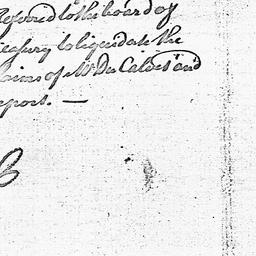 Referred to the board of
treasury to liquidate the
claims of Mr Du Calvet and
report. —